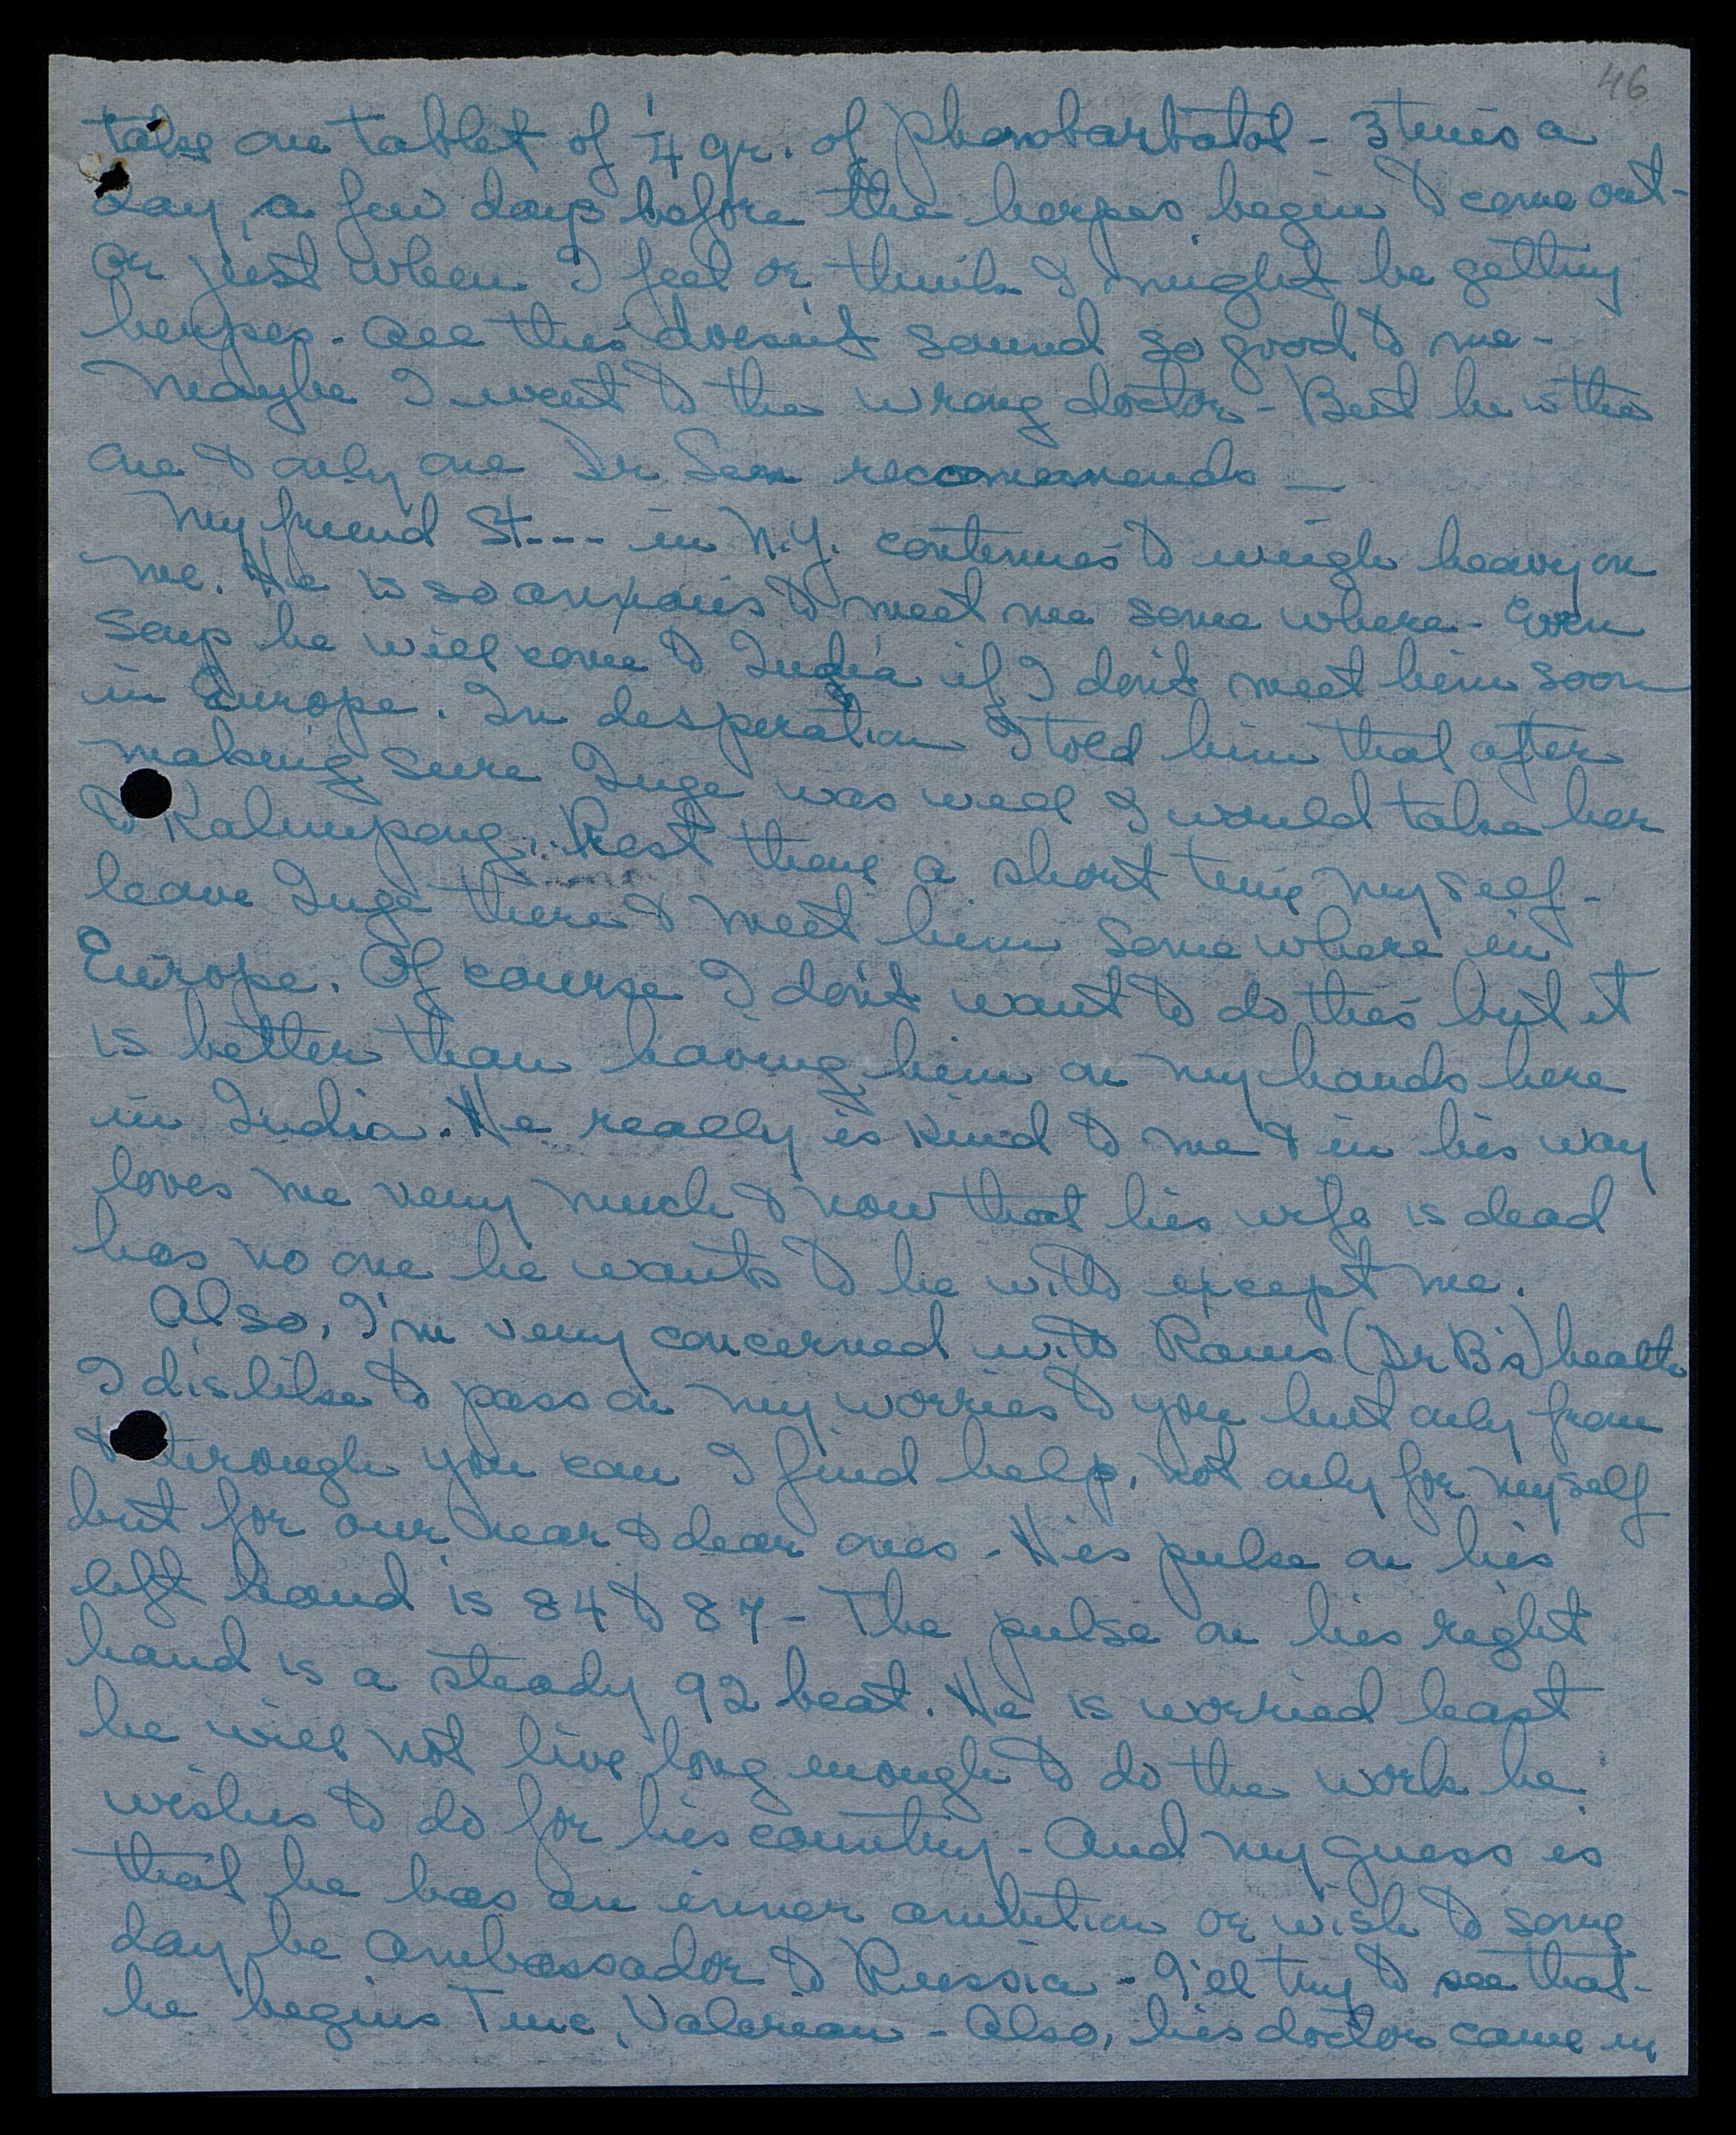 46
take one tablet of 1/4 gr. of phenobarbatol - 3 times a
day, a few days before the herpes begin to come out -
or just when I feel or think I might be getting
herpes - all this doesn't sound so good to me -
Maybe I went to the wrong doctor - But he is the
one & only one Dr Sen recommends —
My friend St--- in N.Y. continues to weigh heavy on
me. He is so anxious to meet me some where - Even
says he will come to India if I don't meet him soon
in Europe. In desperation I told him that after
making sure Inge was well I would take her
to Kalimpong. Rest there a short time myself -
leave Inge there & meet him some where in
Europe. Of course I don't want to do this but it
is better than having him on my hands here
in India. He really is kind to me & in his way
loves me very much & now that his wife is dead
has no one he wants to be with except me.
Also, I'm very concerned with Rams (Dr B's) health
I dislike to pass on my worries to you but only from
& through you can I find help, not only for myself
but for our near & dear ones - His pulse on his
left hand is 84 to 87 - The pulse on his right
hand is a steady 92 beat. He is worried least
he will not live long enough to do the work he
wishes to do for his country - And my guess is
that he has an inner ambition or wish to some
day be ambassador to Russia - I'll try to see that
he begins Tinc, Valerian - Also, his doctors came in